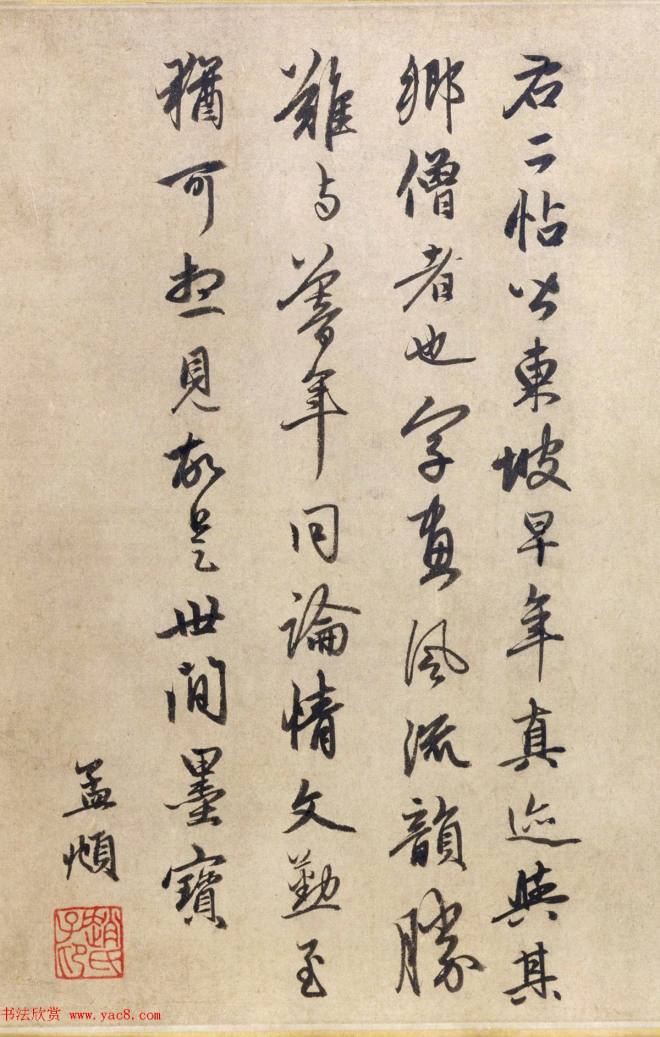 右二帖皆東坡早年真迹與其
鄉僧者也字畫風流韻勝
難与暮年同論情文勤至
猶可想見故是世間墨寶
孟頫
趙氏子昂
书法欣赏 www.yac8.com